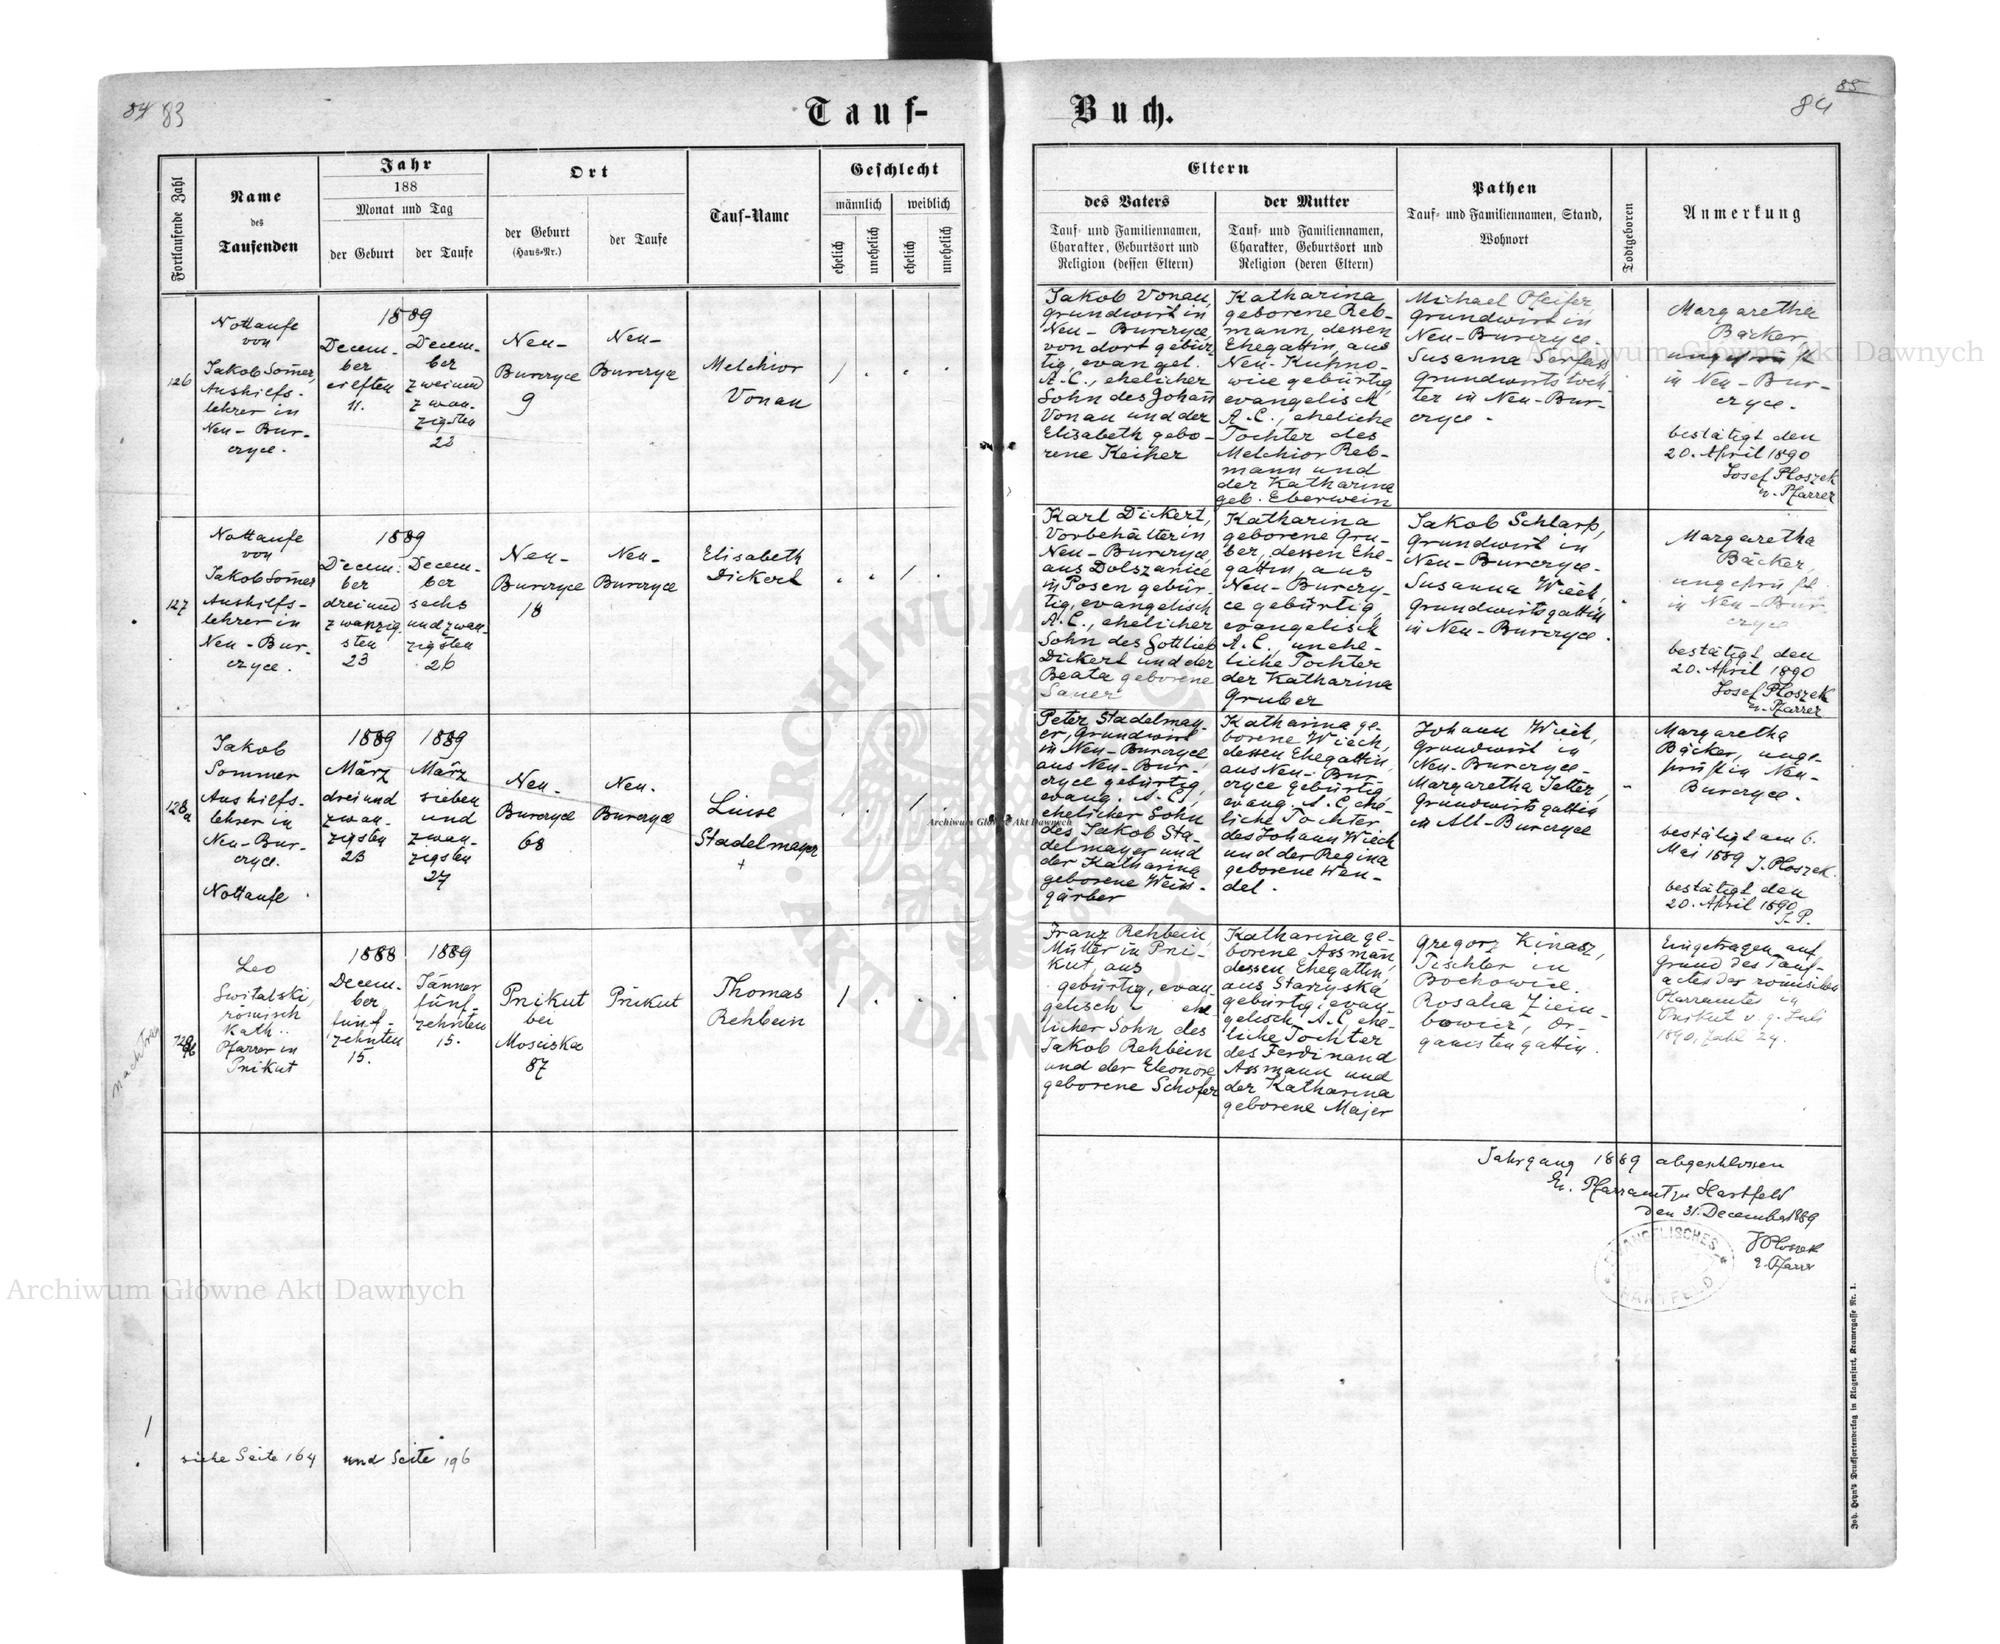 84 83
Tauf-
Buch.
85
84
Fortlaufende Zahl
Name
des
Taufenden
Jahr
188
Monat und Tag
der Geburt
der Taufe
Ort
der Geburt
(Haus-Nr.)
der Taufe
Tauf-Name
Geschlecht
männlich
weiblich
ehelich
unehelich
ehelich
unehelich
Eltern
des Vaters
Tauf- und Familiennamen,
Charakter, Geburtsort und
Religion (dessen Eltern)
der Mutter
Tauf- und Familiennamen,
Charakter, Geburtsort und
Religion (deren Eltern)
Pathen
Tauf- und Familiennamen, Stand,
Wohnort
Todtgeboren
Anmerkung
126
Nottaufe
von
Jakob Somer,
Aushilfs-
lehrer in
Neu-Bur-
czyce.
1889
Decem-
ber
eilften
11.
Decem-
ber
zweiund
zwan-
zigsten
Neu-
Burczyce
9
Neu-
Burczyce
Melchior
Vonau
/
Jakob Vonau,
Grundwirt in
Neu-Burczyce,
von dort gebür-
tig, evangel.
A.C., ehelicher
Sohn des Johan
Vonau und der
Elisabeth gebo-
rene Keiper
Katharina
geborene Reb-
mann, dessen
Ehegattin, aus
Neu-Kupno-
wice gebürtig,
evangelisch
A.C., eheliche
Tochter des
Melchior Reb-
mann und
der Katharina
geb. Eberwein
Michael Pfeifer,
Grundwirt in
Neu-Burczyce.
Susanna Serfass
Grundwirtstoch-
ter in Neu-Bur-
czyce.
Margaretha
Bäcker,
ungeprüft
in Neu-Bur-
czyce.
bestätigt den
20. April 1890
Josef Ploszek
ev. Pfarrer
127
Nottaufe
von
Jakob Somer
Aushilfs-
lehrer in
Neu-Bur-
czyce.
1889
Decem-
ber
dreiund
zwanzig
sten
23
Decem-
ber
sechs
und zwan-
zigsten
26
Neu-
Burczyce
18
Neu-
Burczyce
Elisabeth
Dickert
/
Karl Dickert,
Vorbehälter in
Neu-Burczyce,
aus Dolszanice
in Posen gebür-
tig, evangelisch
A.C., ehelicher
Sohn des Gottlieb
Dickert und der
Beata geborene
Sauer
Katharina
geborene Gru-
ber, dessen Ehe-
gattin, aus
Neu-Burczy-
ce gebürtig,
evangelisch
A.C., unehe-
liche Tochter
der Katharina
Gruber
Jakob Schlarp,
Grundwirt in
Neu-Burczyce.
Susanna Wiech,
Grundwirtsgattin
in Neu-Burczyce.
Margaretha
Bäcker,
ungeprüft
in Neu-Bur-
czyce
bestätigt den
20. April 1890
Josef Ploszek
ev. Pfarrer
128a
Jakob
Sommer
Aushilfs-
lehrer in
Neu-Bur-
czyce.
Nottaufe
1889
März
dreiund
zwan-
zigsten
23
1889
März
sieben
und
zwan-
zigsten
27
Neu-
Burczyce
68
Neu-
Burczyce
Luise
Stadelmayer
+
/
Peter Stadelmay-
er, Grundwirt
in Neu-Burczyce,
aus Neu-Bur-
czyce gebürtig,
evang. A.C.,
ehelicher Sohn
des Jakob Sta-
delmayer und
der Katharina
geborene Wein-
gärber
Katharina ge-
borene Wiech,
dessen Ehegattin,
aus Neu-Bur-
czyce gebürtig,
evang. A.C. ehe-
liche Tochter
des Johann Wiech
und der Regina
geborene Wen-
del.
Johann Wiech,
Grundwirt in
Neu-Burczyce-
Margaretha Jetter,
Grundwirtsgattin
in Alt-Burczyce
Margaretha
Bäcker, unge-
prüft in Neu-
Burczyce.
bestätigt am 6.
Mai 1889 J. Ploszek.
bestätigt den
20. April 1890
J. P.
Nachtrag
128b
Leo
Switalski,
römisch
Kath..
Pfarrer in
Pnikut
1888
Decem-
ber
fünf-
zehnten
15.
1889
Jänner
fünf-
zehnten
15.
Pnikut
bei
Mosciska
87
Pnikut
Thomas
Rehbein
/
Franz Rehbein,
Müller in Pni-
kut aus
gebürtig, evan-
gelisch ehe
licher Sohn des
Jakob Rehbein
und der Eleonore
geborene Schofer
Katharina ge-
borene Assman,
dessen Ehegattin,
aus Starzyska
gebürtig, evan-
gelisch A.C. ehe-
liche Tochter
des Ferdinand
Assmann und
der Katharina
geborene Majer
Gregorz Kinasz,
Tischler in
Bochowice.
Rosalia Ziem-
bowicz, Or-
ganistengattin.
Eingetragen auf
Grund des Tauf-
actes des römischen
Pfarramtes in
Pnikut v. 9. Juli
1890, Zahl 24.
Jahrgang 1889 abgeschlossen
Ev. Pfarramt zu Hartfeld
den 31. December 1889
JPloszek
e. Pfarrer
EVANGELISCHES
HARTFELD
siehe Seite 164 und Seite 196
Joh. Heyn's Drucksortenverlag in Klagenfurt, Kramergasse Nr. 1.
Archiwum Główne Akt Dawnych
Archiwum Główne Akt Dawnych
Archiwum Główne Akt Dawnych
ARCHIWUM
AKT DAWNYCH